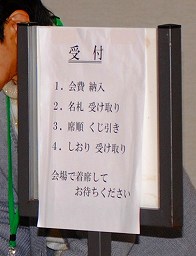 受付
1．会費 納入
2．名札 受け取り
3．席順 くじ引き
4．しおり 受け取り
会場で着席して
お待ちください